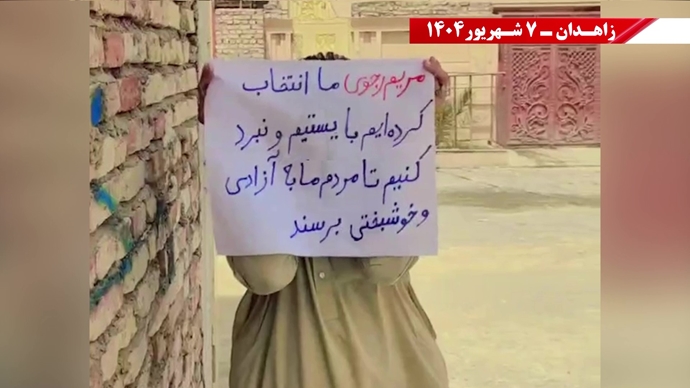 زاهدان - ۷ شهریور ۱۴۰۴
مریم رجوی ما انتخاب
کرده‌ایم بایستیم و نبرد
کنیم تا مردم ما به آزادی
و خوشبختی برسند